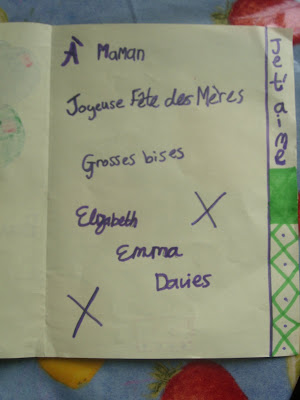 À Maman
Joyeuse Fête des Mères
Grosses bises
Elizabeth
X
Emma
Davies
X
Je t'aime